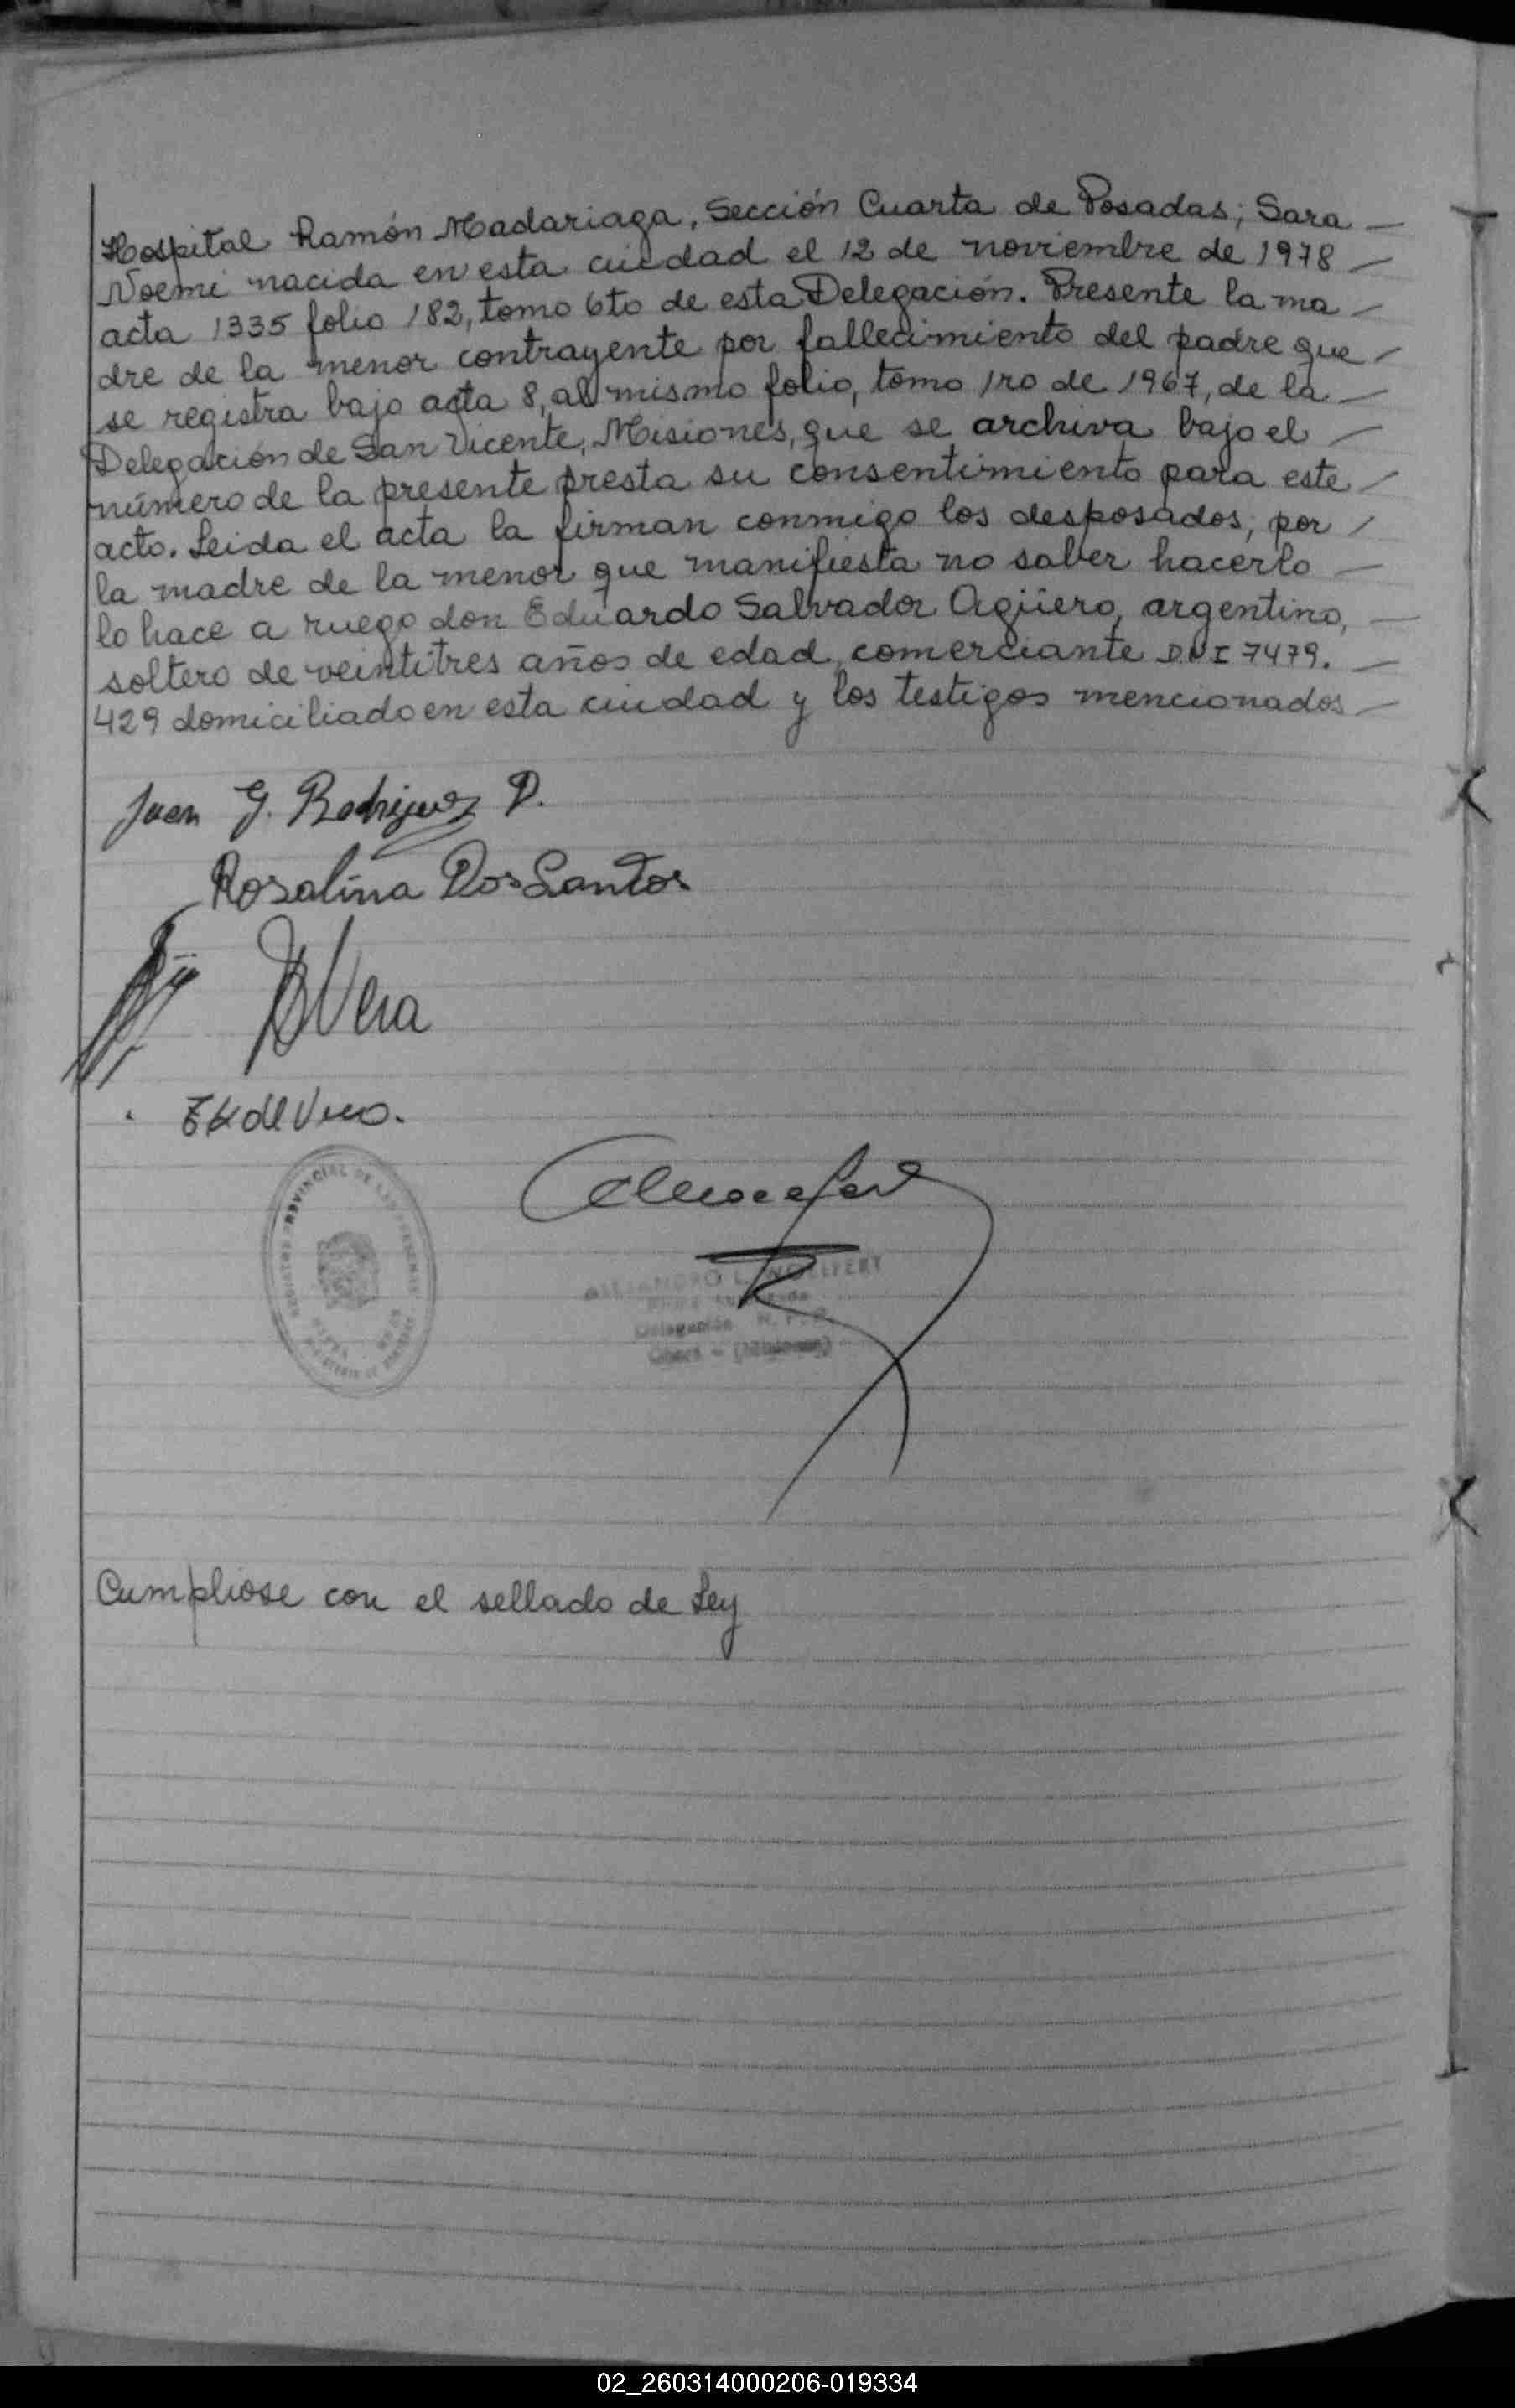 Hospital Ramón Madariaga, Sección Cuarta de Posadas; Sara —
Noemi nacida en esta ciudad el 12 de noviembre de 1978 —
acta 1335 folio 182, tomo 6to de esta Delegación. Presente la ma —
dre de la menor contrayente por fallecimiento del padre que —
se registra bajo acta 8, al mismo folio, tomo 1ro de 1967, de la —
Delegación de San Vicente, Misiones, que se archiva bajo el —
número de la presente presta su consentimiento para este —
acto. Leida el acta la firman conmigo los desposados, por /
la madre de la menor que manifiesta no saber hacerlo —
lo hace a ruego don Eduardo Salvador Agüero, argentino, —
soltero de veintitres años de edad, comerciante DNI 7479. —
429 domiciliado en esta ciudad y los testigos mencionados —
Juan G. Rodriguez D.
Rosalina Dos Santos
Vera
de Vera.
REGISTRO PROVINCIAL DE LAS PERSONAS
ALEJANDRO L. WOLLFERT
Delegación R. P. P.
Oberá - (Misiones)
Cumpliose con el sellado de Ley
02_260314000206-019334